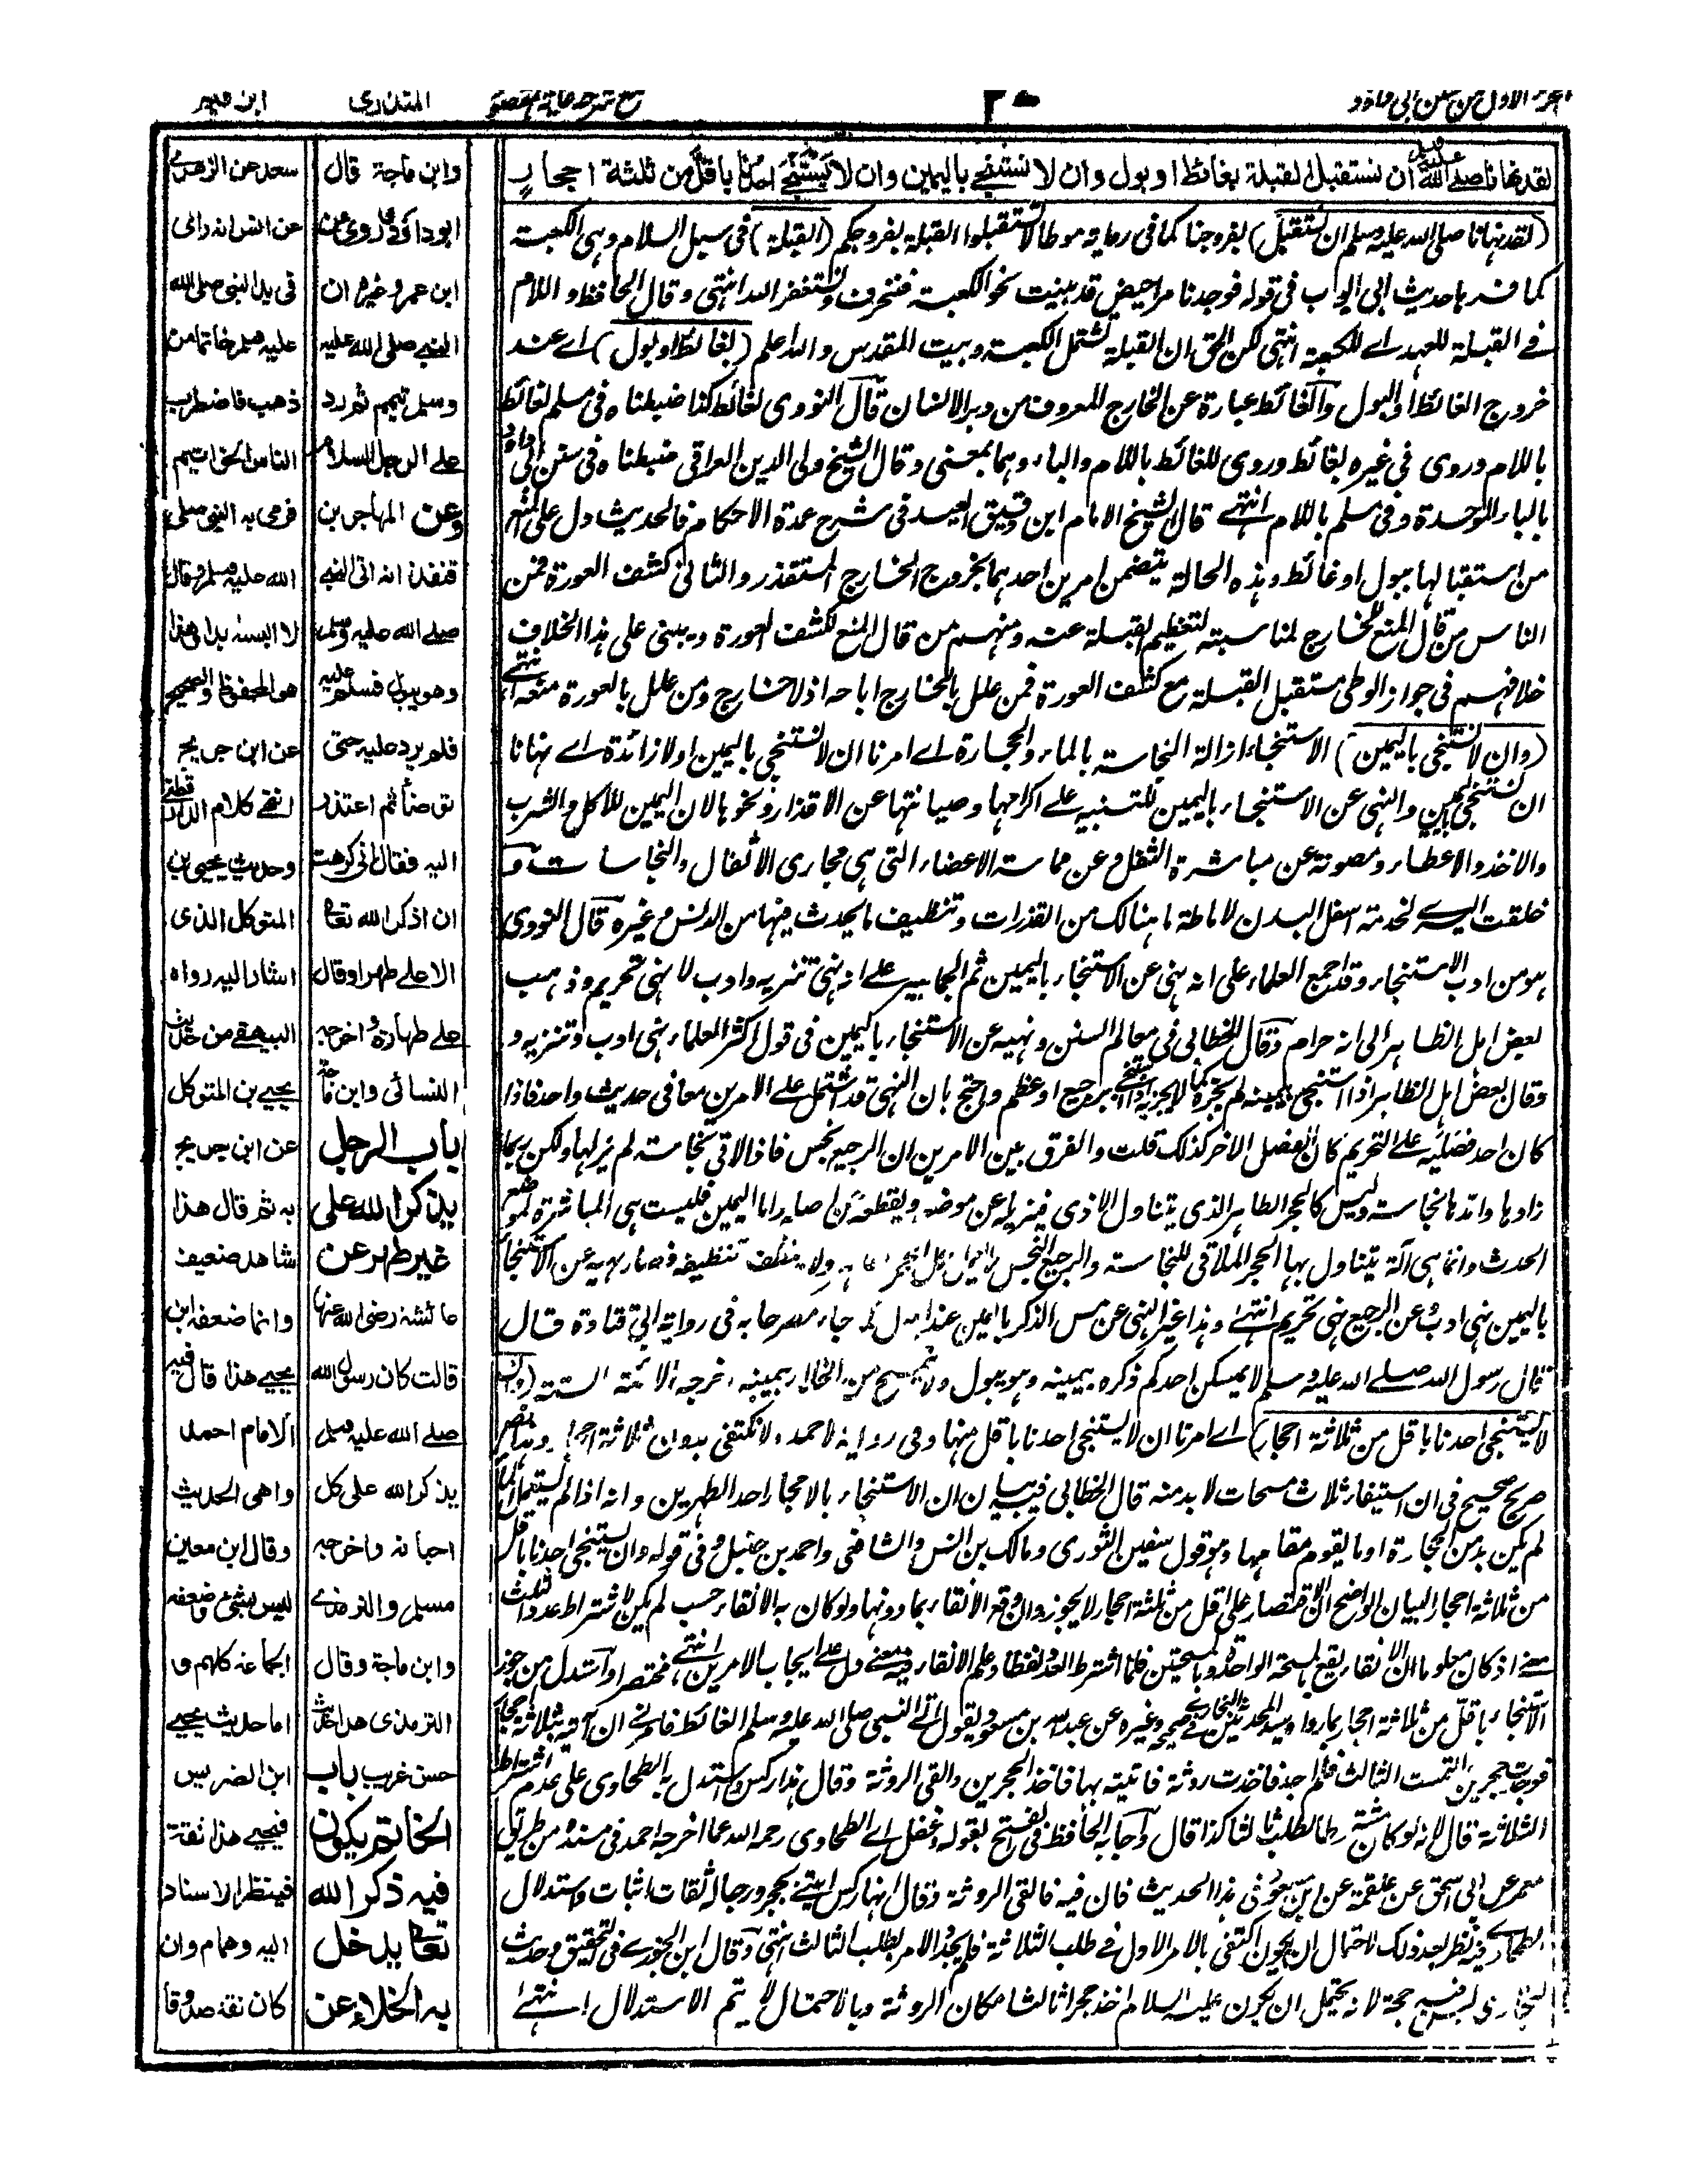 الجزء الاول من سنن ابى داود
مع شرحه غاية المقصود
المنذرى
ابن قيم
لقد نهانا صلى الله عليه وسلم ان نستقبل القبلة بغائط او بول وان لا نستنجى باليمين وان لا يستنجى احدنا باقل من ثلثة احجار
(لقد نهانا صلى الله عليه وسلم ان نستقبل) بفروجنا كما فى رواية موطا لا تستقبلوا القبلة بفروجكم (القبلة) فى سبل السلام وهى الكعبة
كما فسرها حديث ابى ايوب فى قوله فوجدنا مراحيض قد بنيت نحو الكعبة فننحرف ونستغفر الله انتهى وقال الحافظ واللام
فى القبلة للعهد اے للكعبة انتهى لكن الحق ان القبلة تشمل الكعبة وبيت المقدس والله اعلم (لغائط او بول) اے عند
خروج الغائط او البول والغائط عبارة عن الخارج المعروف من دبر الانسان قال النووى لغائط كذا ضبطناه فى مسلم لغائط
باللام وروى فى غيره بغائط وروى للغائط باللام والباء وهما بمعنى وقال الشيخ ولى الدين العراقى ضبطناه فى سنن ابى داود
بالباء الموحدة وفى مسلم باللام انتهى قال الشيخ الامام ابن دقيق العيد فى شرح عمدة الاحكام فالحديث دل على المنع
من استقبالها ببول او غائط وهذه الحالة يتضمن امرين احدهما بخروج الخارج المستقذر والثانى كشف العورة فمن
الناس من قال المنع للخارج لمناسبته لتعظيم القبلة عنه ومنهم من قال المنع لكشف العورة ويبنى على هذا الخلاف
خلافهم فى جواز الوطى مستقبل القبلة مع كشف العورة فمن علل بالخارج اباحه اذ لا خارج ومن علل بالعورة منعه انتهى
(وان لا نستنجى باليمين) الاستنجاء ازالة النجاسة بالماء والحجارة اے امرنا ان لا نستنجى باليمين او لا زائدة اے نهانا
ان نستنجى باليمين والنهى عن الاستنجاء باليمين للتنبيه على اكرامها وصيانتها عن الاقذار ونحوها لان اليمين للاكل والشرب
والاخذ والاعطاء ومصونة عن مباشرة الثفل وعن مماسة الاعضاء التى هى مجارى الاثفال والنجاسات و
خلقت اليسرى لخدمة اسفل البدن لاماطة ما هنالك من القذرات وتنظيف ما يحدث فيها من الدنس وغيره قال النووى
هو من ادب الاستنجاء وقد اجمع العلماء على انه نهى عن الاستنجاء باليمين ثم الجماهير على انه نهى تنزيه وادب لا نهى تحريم وذهب
بعض اهل الظاهر الى انه حرام وقال الخطابى فى معالم السنن ونهيه عن الاستنجاء باليمين فى قول اكثر العلماء نهى ادب وتنزيه و
وقال بعض اهل الظاهر اذا استنجى بيمينه لم يجزه كما لا يجزيه اذا استنجى برجيع او عظم واحتج بان النهى قد اشتمل على الامرين معا فى حديث واحد فاذا
كان احد فصليه على التحريم كان الفصل الاخر كذلك قلت والفرق بين الامرين ان الرجيع نجس فاذا لاقى نجاسة لم يزلها ولكن ربما
زادها وامدها نجاسة وليس كالحجر الطاهر الذى يتناول الاذى فيزيله عن موضعه ويقطعه عن اصله واما اليمين فليست هى المباشرة لموضع
الحدث وانما هى آلة يتناول بها الحجر الملاقى للنجاسة والرجيع النجس ولا ينظف تنظيفه فصار نهيه عن الاستنجاء
باليمين نهى ادب وعن الرجيع نهى تحريم انتهى وهذا غير النهى عن مس الذكر باليمين عند البول كما جاء مصرحا به فى رواية ابى قتادة قال
قال رسول الله صلى الله عليه وسلم لا يمسكن احدكم ذكره بيمينه وهو يبول ولا يتمسح من الخلاء بيمينه اخرجه الائمة الستة (وان
لا يستنجى احدنا باقل من ثلاثة احجار) اے امرنا ان لا يستنجى احدنا باقل منها وفى رواية لاحمد ولا نكتفى بدون ثلاثة احجار وهذا نص
صريح صحيح فى ان استيفاء ثلاث مسحات لا بد منه قال الخطابى فيه بيان ان الاستنجاء بالاحجار احد الطهرين وانه اذا لم يستعمل الماء
لم يكن بد من الحجارة او ما يقوم مقامها وهو قول سفين الثورى ومالك بن انس والشافعى واحمد بن حنبل وفى قوله وان يستنجى احدنا باقل
من ثلاثة احجار البيان الواضح ان الاقتصار على اقل من ثلثة احجار لا يجوز وان وقع الانقاء بما دونها ولو كان به الانقاء حسب لم يكن لاشتراط عدد الثلث
معنى اذ كان معلوما ان الانقاء يقع بالمسحة الواحدة وبالمسحتين فلما اشترط العدد لفظا وعلم الانقاء فيه معنى دل على ايجاب الامرين انتهى مختصرا واستدل من جوز
الاستنجاء باقل من ثلاثة احجار بما رواه سيد المحدثين البخارى فى صحيحه وغيره عن عبد الله بن مسعود يقول اتى النبى صلى الله عليه وسلم الغائط فامرنى ان آتيه بثلاثة احجار
فوجدت حجرين والتمست الثالث فلم اجد فاخذت روثة فاتيته بها فاخذ الحجرين والقى الروثة وقال هذا ركس واستدل به الطحاوى على عدم اشتراط
الثلاثة قال لانه لو كان مشترطا لطلب ثالثا كذا قال واجابه الحافظ فى الفتح بقوله وغفل اے الطحاوى رحمه الله عما اخرجه احمد فى مسنده من طريق
معمر عن ابى اسحق عن علقمة عن ابن مسعود فى هذا الحديث فان فيه فالقى الروثة وقال انها ركس ايتنى بحجر ورجاله ثقات اثبات واستدلال
الطحاوى فيه نظر بعد ذلك لاحتمال ان يكون اكتفى بالامر الاول فى طلب الثلاثة فلم يجدد الامر بطلب الثالث انتهى وقال ابن الجوزى فى التحقيق وحديث
البخارى ليس فيه حجة لانه يحتمل ان يكون عليه السلام اخذ حجرا ثالثا مكان الروثة وبالاحتمال لا يتم الاستدلال انتهى
وابن ماجة قال
ابو داؤد وروى عن
ابن عمر وغيره ان
النبى صلى الله عليه
وسلم تيمم ثم رد
على الرجل السلام
وعن المهاجر بن
قنفذ انه اتى النبى
صلى الله عليه وسلم
وهو يبول فسلم عليه
فلم يرد عليه حتى
توضأ ثم اعتذر
اليه فقال انى كرهت
ان اذكر الله تعالى
الا على طهر او قال
على طهارة واخرجه
النسائى وابن ماجة
باب الرجل
يذكر الله على
غير طهر عن
عائشة رضى الله عنها
قالت كان رسول الله
صلى الله عليه وسلم
يذكر الله على كل
احيانه واخرجه
مسلم والترمذى
وابن ماجة وقال
الترمذى هذا حديث
حسن غريب باب
الخاتم يكون
فيه ذكر الله
تعالى يدخل
به الخلاء عن
سعد عن الزهرى
عن انس انه راى
فى يد النبى صلى الله
عليه وسلم خاتما من
ذهب فاضطرب
الناس الخواتيم
فرمى به النبى صلى
الله عليه وسلم وقال
لا البسه ابدا هذا
هو المحفوظ والصحيح
عن ابن جريج
انتهى كلام الدارقطنى
وحديث يحيى بن
المتوكل الذى
اشار اليه رواه
البيهقى من حديث
يحيى بن المتوكل
عن ابن جريج
به ثم قال هذا
شاهد ضعيف
وانما ضعفه ابن
يحيى هذا قال فيه
الامام احمد
واهى الحديث
وقال ابن معين
ليس بشئ وضعفه
الجماعة كلهم و
اما حديث يحيى
ابن الضريس
فيحيى هذا ثقة
فينظر الاسناد
اليه وهمام وان
كان ثقة صدوقا